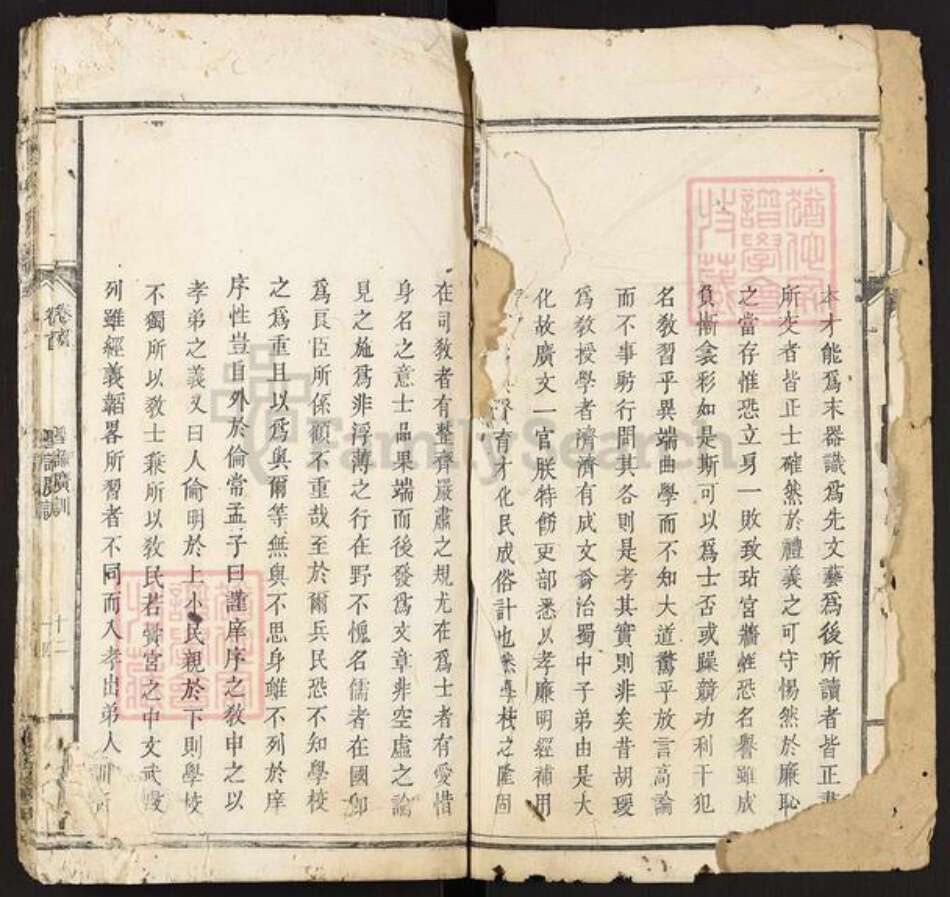 本才能爲末器識爲先文藝爲後所讀者皆正書
所交者皆正士確然於禮義之可守惕然於廉恥
之當存惟恐立身一敗致玷宮牆惟恐名譽雖成
負慚衾彩如是斯可以爲士否或躁競功利干犯
名教習乎異端曲學而不知大道騖乎放言高論
而不事躬行問其各則是考其實則非矣昔胡瑗
爲教授學者濟濟有成文翁治蜀中子弟由是大
化故廣文一官朕特飭吏部悉以孝廉明經補用
育才化民成俗計也然學校之隆固
在司教者有整齊嚴肅之規尤在爲士者有愛惜
身名之意士品果端而後發爲文章非空虛之論
見之施爲非浮薄之行在野不愧名儒者在國卽
爲良臣所係顧不重哉至於爾兵民恐不知學校
之爲重且以爲與爾等無與不思身雖不列於庠
序性豈自外於倫常孟子曰謹庠序之教申之以
孝弟之義又曰人倫明於上小民親於下則學校
不獨所以教士兼所以教民若黌宮之中文武
列雖經義韜畧所習者不同而入孝出弟人
卷首
聖諭廣訓
十二
猶他家譜學會收藏
猶他家譜學會收藏
FamilySearch